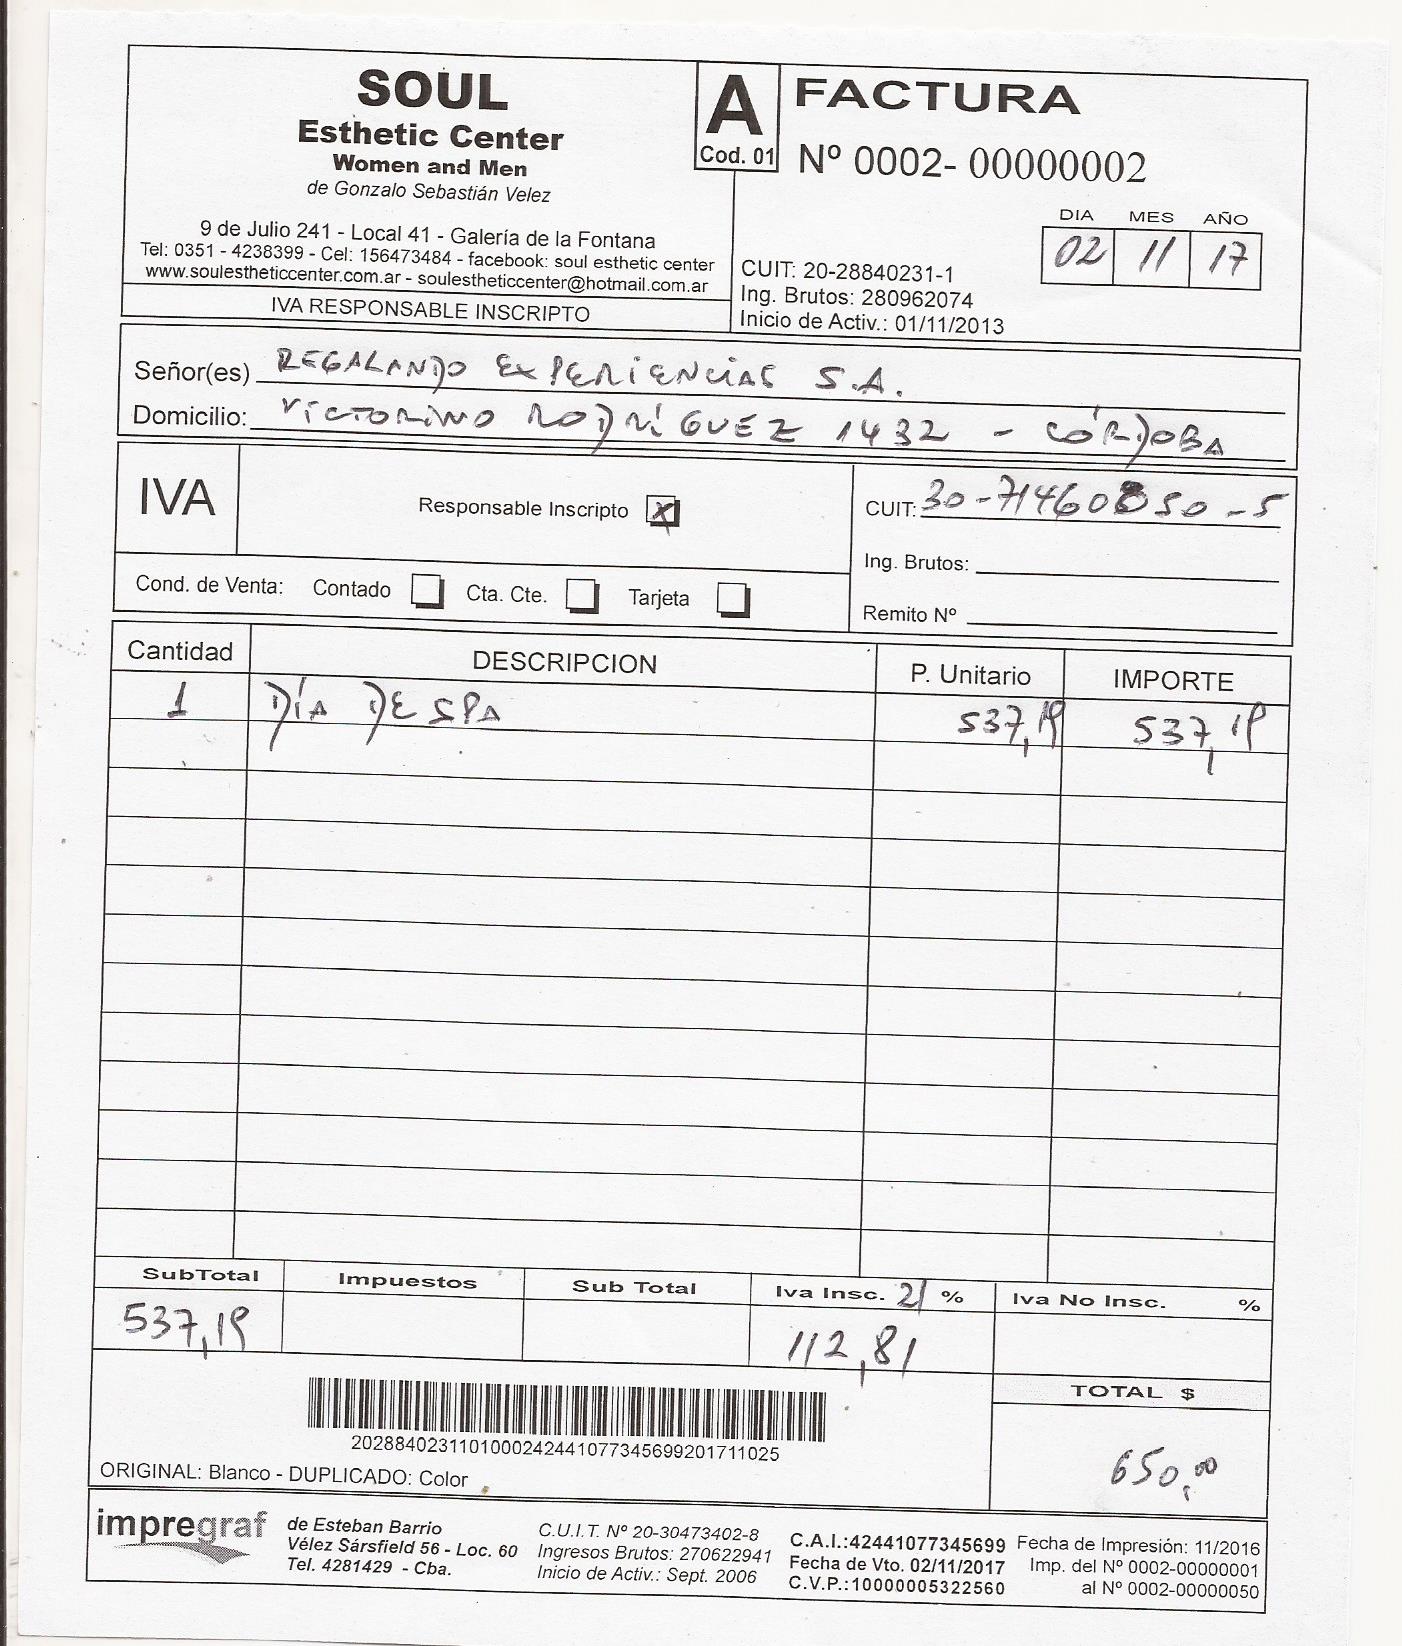 SOUL
Esthetic Center
Women and Men
de Gonzalo Sebastián Velez
9 de Julio 241 - Local 41 - Galería de la Fontana
Tel: 0351 - 4238399 - Cel: 156473484 - facebook: soul esthetic center
www.soulestheticcenter.com.ar - soulestheticcenter@hotmail.com.ar
IVA RESPONSABLE INSCRIPTO
A
Cod. 01
FACTURA
Nº 0002- 00000002
DIA MES AÑO
02 11 17
CUIT: 20-28840231-1
Ing. Brutos: 280962074
Inicio de Activ.: 01/11/2013
Señor(es) REGALANDO EXPERIENCIAS S.A.
Domicilio: VICTORINO RODRÍGUEZ 1432 - CÓRDOBA
IVA
Responsable Inscripto X
CUIT: 30-71460850-5
Ing. Brutos:
Remito Nº
Cond. de Venta: Contado Cta. Cte. Tarjeta
Cantidad DESCRIPCION P. Unitario IMPORTE
1 DÍA DE SPA 537,19 537,19
SubTotal Impuestos Sub Total Iva Insc. 21 % Iva No Insc. %
537,19 112,81
TOTAL $
650,00
20288402311010002424410773456992017110​25
ORIGINAL: Blanco - DUPLICADO: Color
impregraf
de Esteban Barrio
Vélez Sársfield 56 - Loc. 60
Tel. 4281429 - Cba.
C.U.I.T. Nº 20-30473402-8
Ingresos Brutos: 270622941
Inicio de Activ.: Sept. 2006
C.A.I.:42441077345699
Fecha de Vto. 02/11/2017
C.V.P.:10000005322560
Fecha de Impresión: 11/2016
Imp. del Nº 0002-00000001
al Nº 0002-00000050